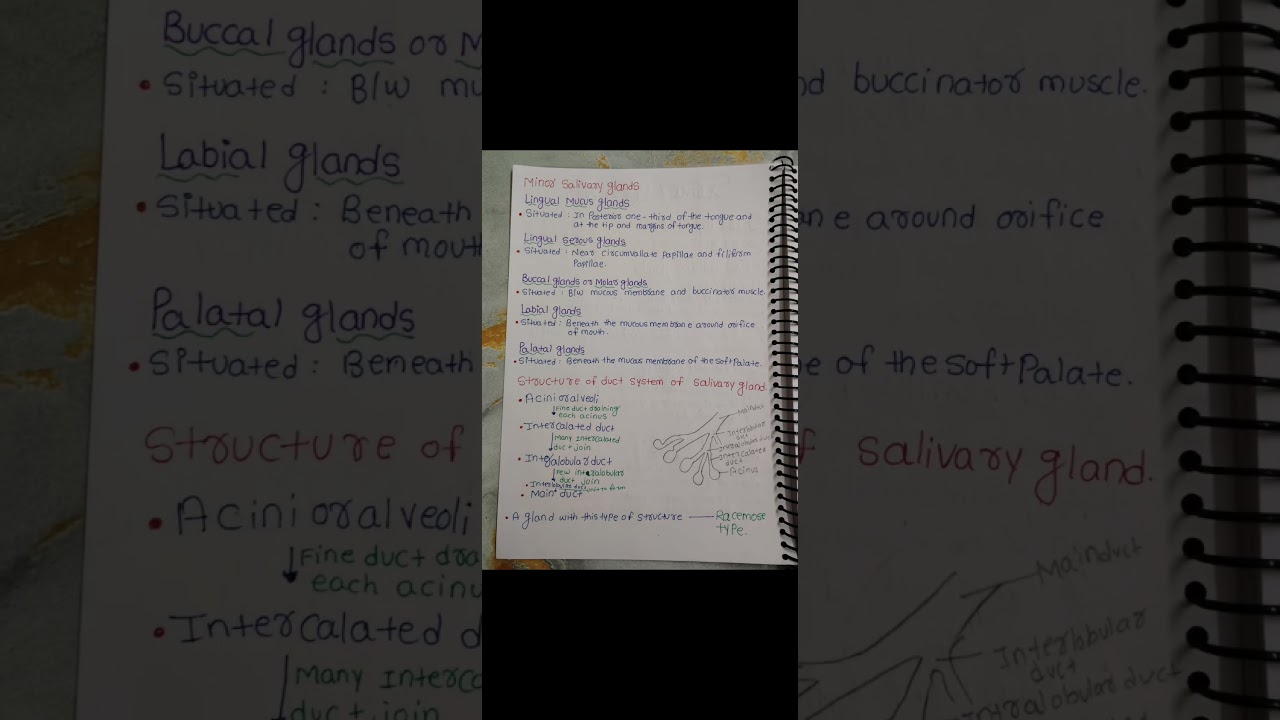 Minor Salivary glands
Lingual Mucus glands
• Situated : In Posterior one-third of the tongue and
at the tip and margins of tongue.
Lingual Serous glands
• Situated : Near circumvallate papillae and filiform
Papillae.
Buccal glands or Molar glands
• Situated : B/w mucous membrane and buccinator muscle.
Labial glands
• Situated : Beneath the mucous membrane around orifice
of mouth.
Palatal glands
• Situated : Beneath the mucus membrane of the soft Palate.
Structure of duct system of salivary gland.
• Acini or alveoli
Fine duct draining
each acinus
• Intercalated duct
Many Intercalated
duct join
• Intralobular duct
Few intralobular
duct join
• Interlobular duct unite to form
• Main duct
Main duct
Interlobular
duct
Intralobular duct
Intercalated
duct
Acinus
• A gland with this type of structure — Racemose
type.